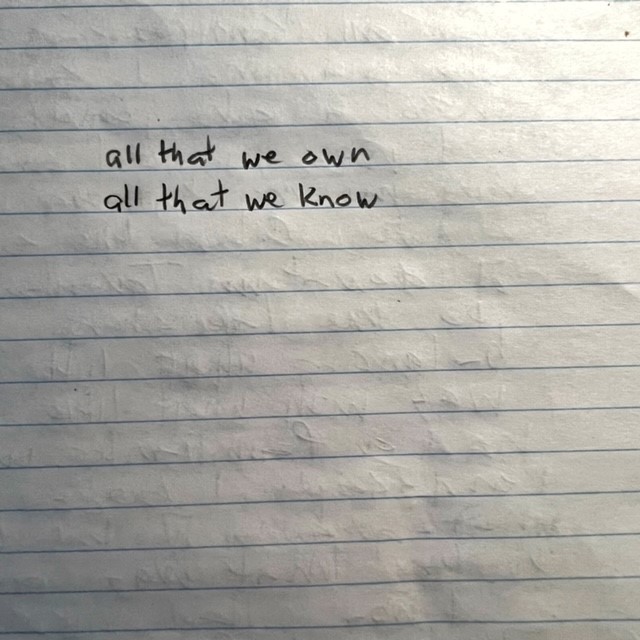 all that we own
all that we know